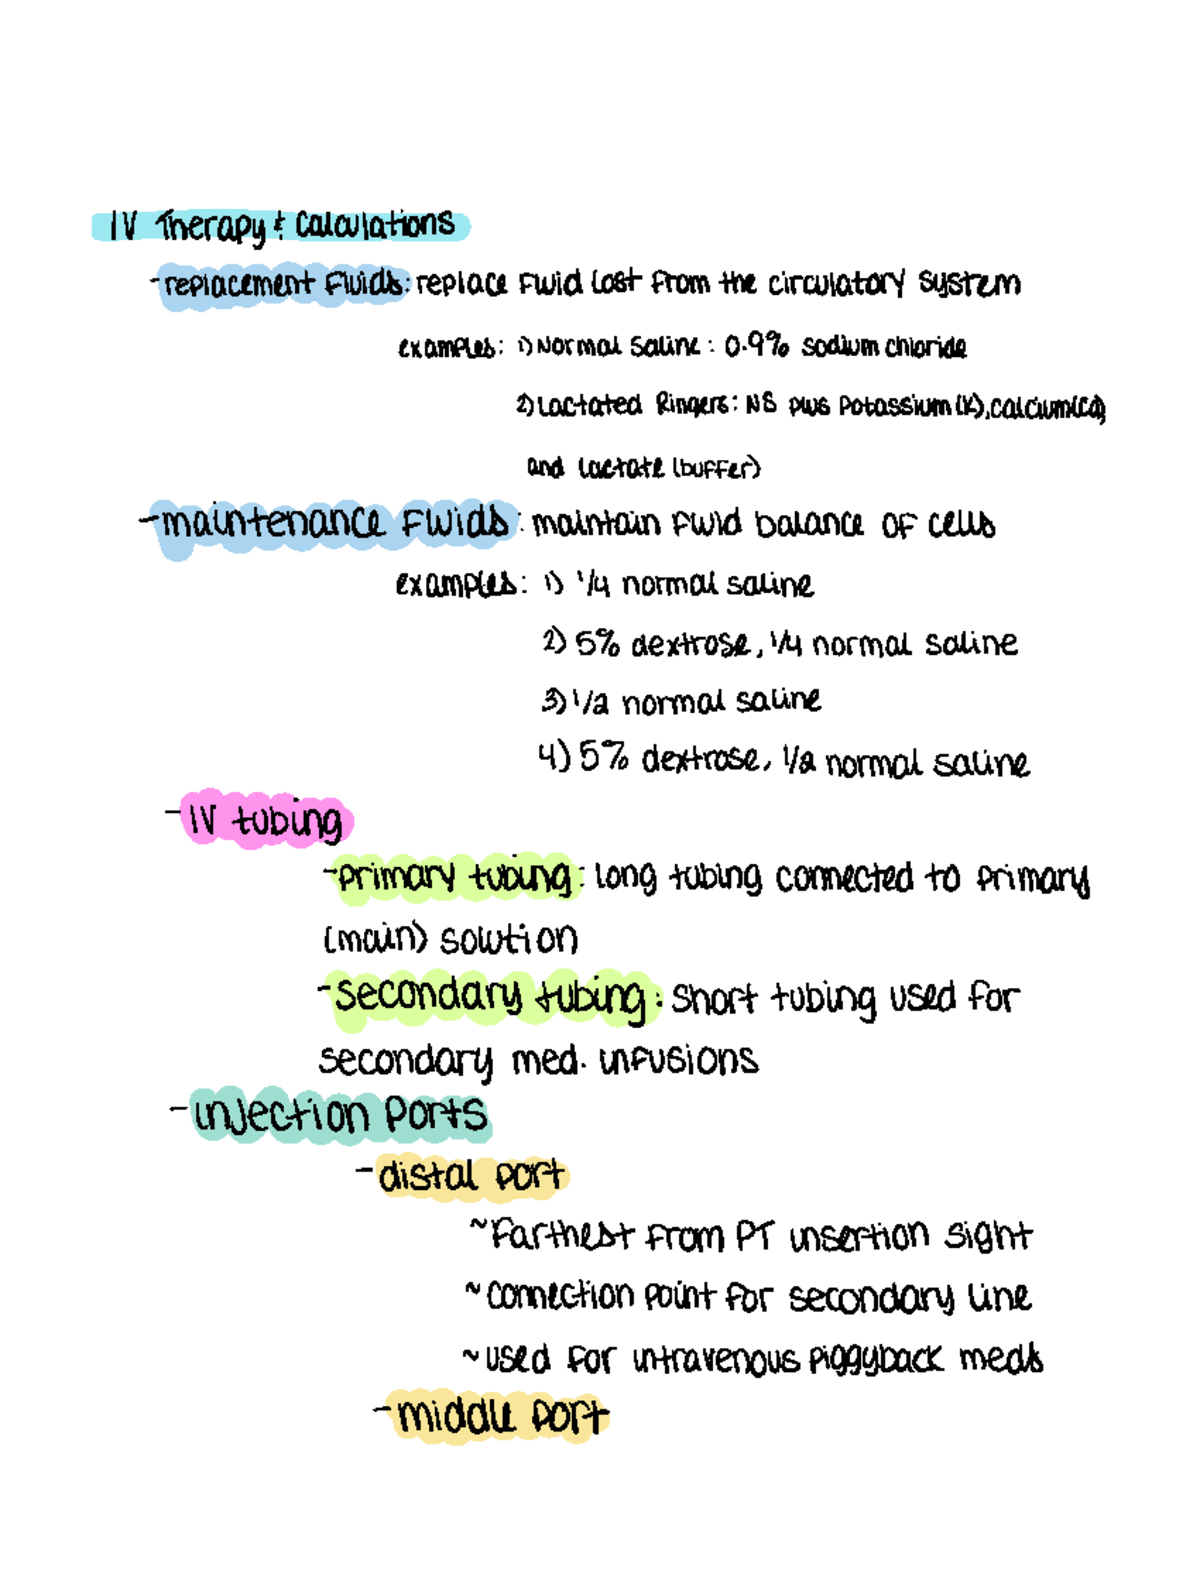 IV Therapy & Calculations
-replacement fluids: replace fluid lost from the circulatory system
examples: 1) Normal Saline: 0.9% sodium chloride
2) Lactated Ringers: NS plus Potassium (K), calcium (Ca),
and lactate (buffer)
-maintenance fluids: maintain fluid balance of cells
examples: 1) 1/4 normal saline
2) 5% dextrose, 1/4 normal saline
3) 1/2 normal saline
4) 5% dextrose, 1/2 normal saline
-IV tubing
-primary tubing: long tubing connected to primary
(main) solution
-secondary tubing: short tubing used for
secondary med. infusions
-injection ports
-distal port
~farthest from PT insertion sight
~connection point for secondary line
~used for intravenous piggyback meds
-middle port